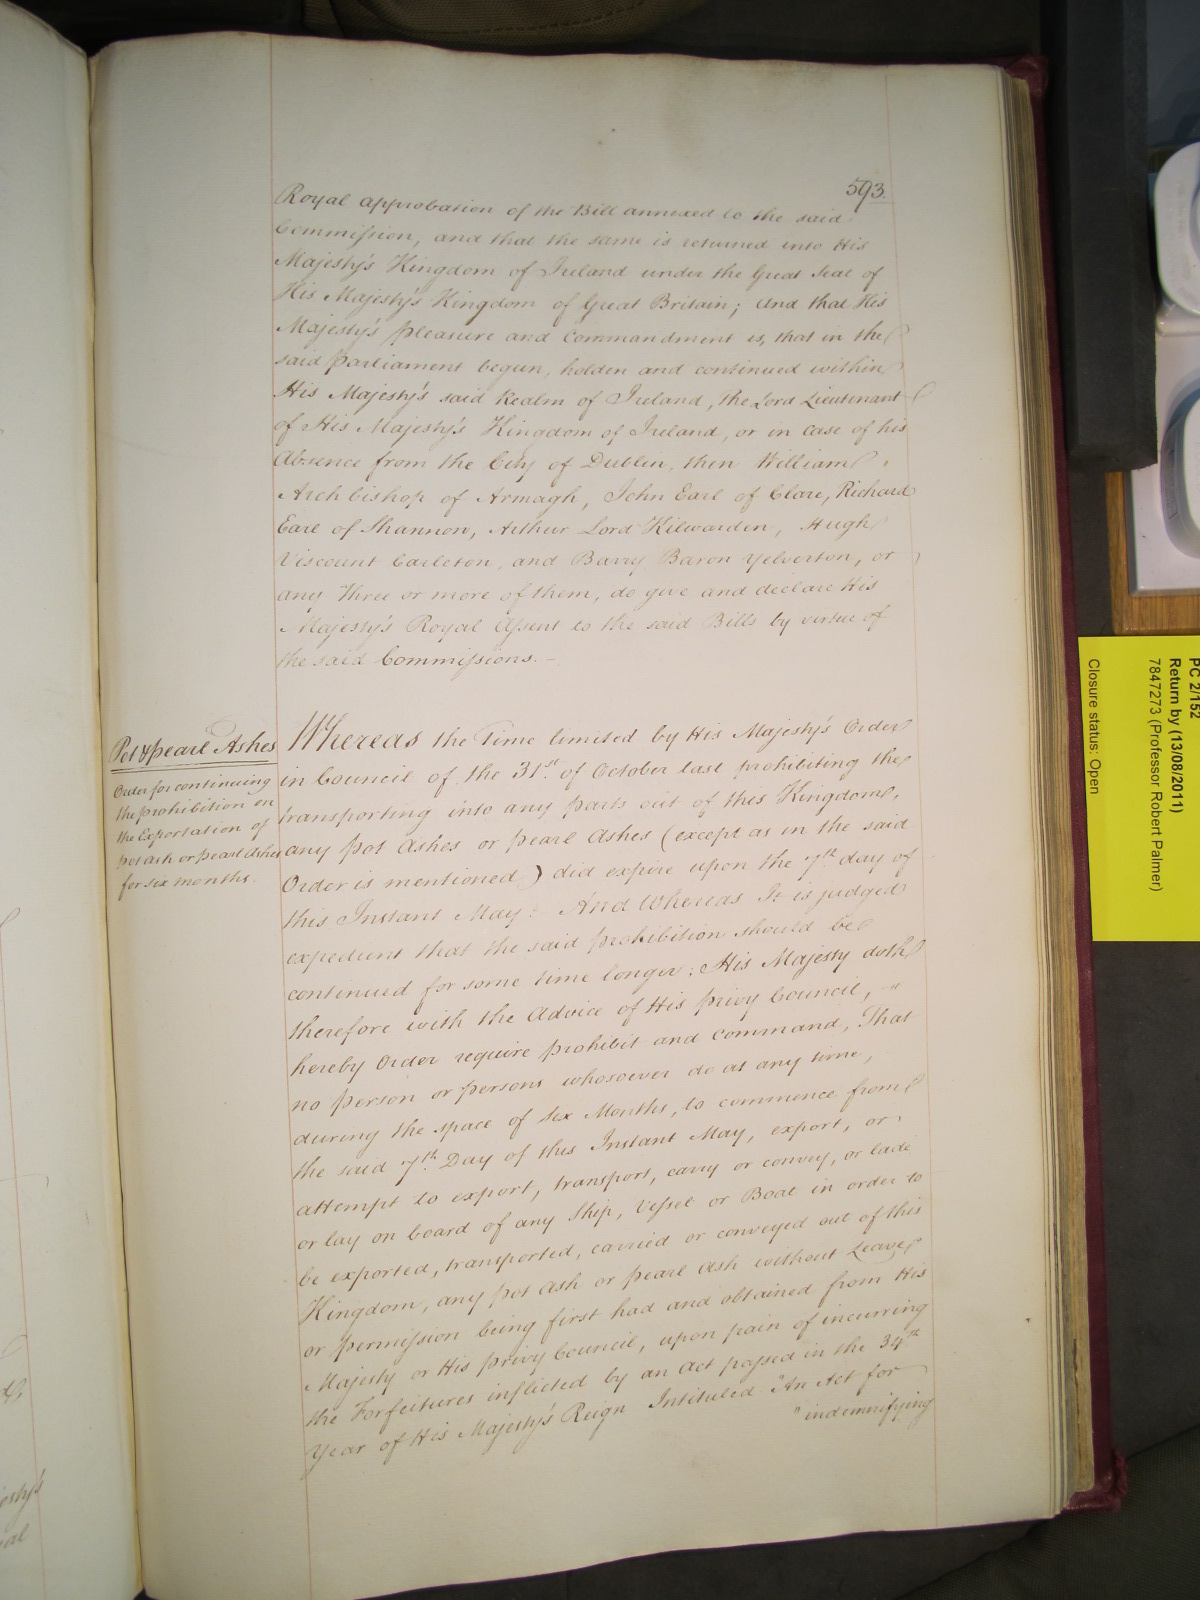 593.
Royal approbation of the Bill annexed to the said
Commission, and that the same is returned into His
Majesty's Kingdom of Ireland under the Great Seal of
His Majesty's Kingdom of Great Britain; And that His
Majesty's pleasure and Commandment is, that in the
said Parliament begun, holden and continued within
His Majesty's said Realm of Ireland, the Lord Lieutenant
of His Majesty's Kingdom of Ireland, or in case of his
Absence from the City of Dublin, then William
Archbishop of Armagh, John Earl of Clare, Richard
Earl of Shannon, Arthur Lord Kilwarden, Hugh
Viscount Carleton, and Barry Baron Yelverton, or
any Three or more of them, do give and declare His
Majesty's Royal Assent to the said Bills by virtue of
the said Commissions. —
Pot & pearl Ashes
Order for continuing
the prohibition on
the Exportation of
pot ash or pearl Ashes
for six months.
Whereas the Time limited by His Majesty's Order
in Council of the 31st. of October last prohibiting the
transporting into any parts out of this Kingdom,
any Pot Ashes or pearl Ashes (except as in the said
Order is mentioned) did expire upon the 7th day of
this Instant May: And Whereas It is judged
expedient that the said prohibition should be
continued for some time longer; His Majesty doth
therefore with the Advice of His Privy Council, "
hereby Order require prohibit and command, That
no person or persons whosoever do at any time,
during the space of Six Months, to commence from
the said 7th. Day of this Instant May, export, or
attempt to export, transport, carry or convey, or lade
or lay on board of any Ship, Vessel or Boat in order to
be exported, transported, carried or conveyed out of this
Kingdom, any pot Ash or pearl Ash without Leave
or permission being first had and obtained from His
Majesty or His privy Council, upon pain of incurring
the Forfeitures inflicted by an Act passed in the 34th
Year of His Majesty's Reign Intituled "An Act for
"indemnifying
PC 2/152
Return by (13/08/2011)
7847273 (Professor Robert Palmer)
Closure status: Open